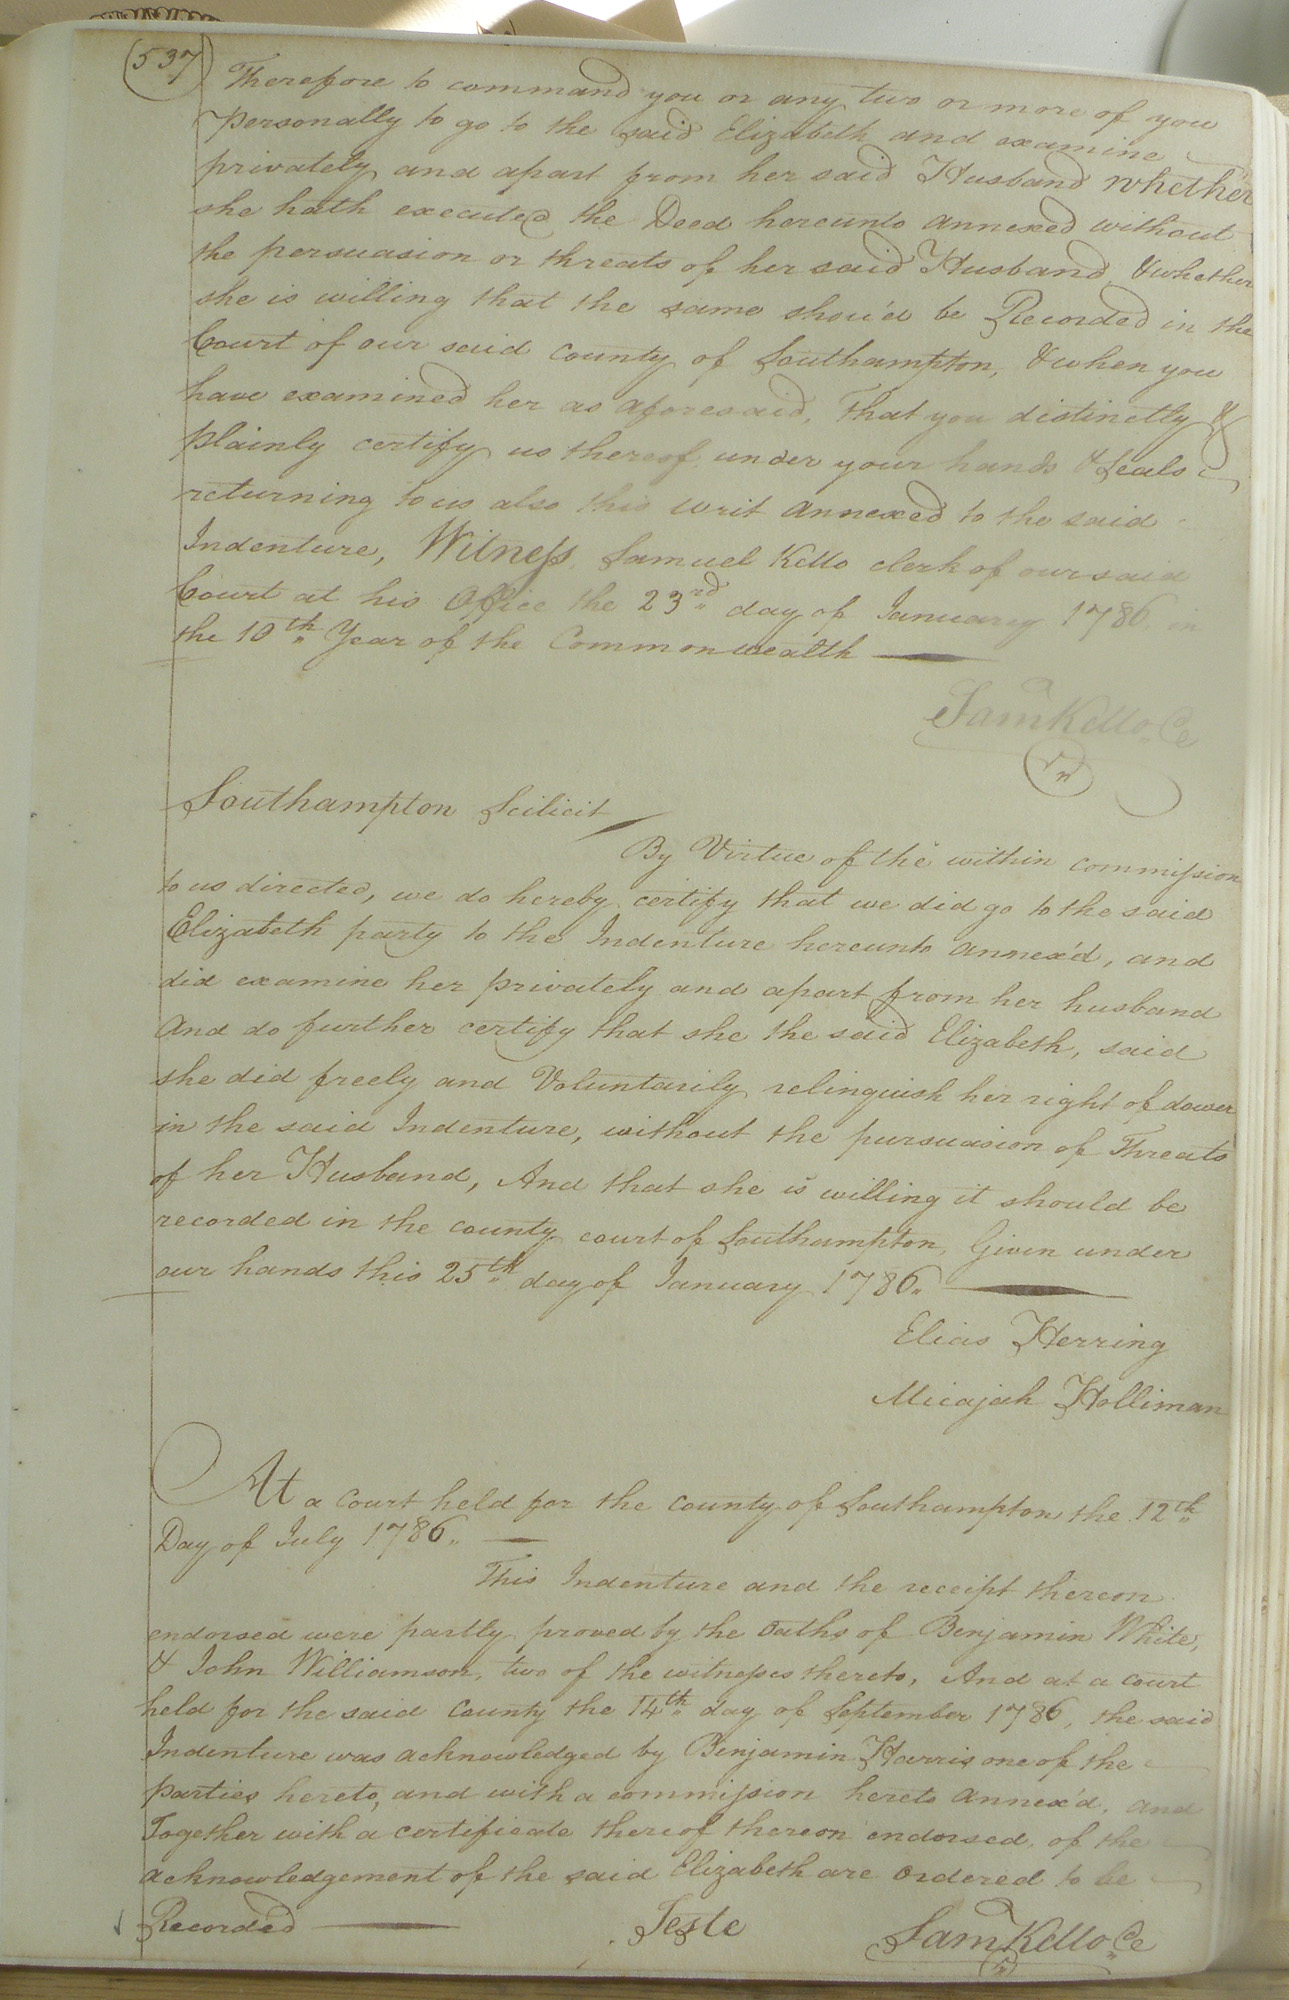 (537)
Therefore to command you or any two or more of you
personally to go to the said Elizabeth and examine
privately and apart from her said Husband whether
she hath executed the Deed hereunto annexed without
the persuasion or threats of her said Husband & whether
she is willing that the same shou'd be Recorded in the
Court of our said County of Southampton, & when you
have examined her as aforesaid, That you distinctly &
plainly certify us thereof under your hands & Seals
returning to us also this writ annexed to the said
Indenture, Witness Samuel Kello clerk of our said
Court at his Office the 23rd day of January 1786. in
the 10th Year of the Commonwealth
Saml Kello Cc
Southampton Scilicit
By Virtue of the within commission
to us directed, we do hereby certify that we did go to the said
Elizabeth party to the Indenture hereunto annex'd, and
did examine her privately and apart from her husband
And do further certify that she the said Elizabeth, said
she did freely and Voluntarily relinquish her right of dower
in the said Indenture, without the pursuasion of Threats
of her Husband, And that she is willing it should be
recorded in the county court of Southampton, Given under
our hands this 25th day of January 1786.
Elias Herring
Micajah Holliman
At a Court held for the county of Southampton the 12th
Day of July 1786.
This Indenture and the receipt thereon
endorsed were partly proved by the Oaths of Benjamin White,
& John Williamson, two of the witnesses thereto, And at a court
held for the said County the 14th day of September 1786, the said
Indenture was acknowledged by Benjamin Harris one of the
parties hereto, and with a commission hereto annex'd, and
Together with a certificate thereof thereon endorsed, of the
acknowledgement of the said Elizabeth are ordered to be
Recorded
Teste
Saml Kello Cc